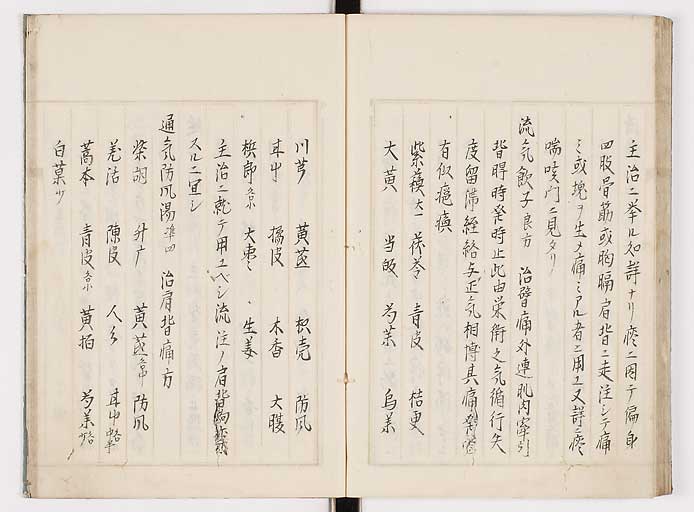 主治ニ挙ル如詳ナリ痰ニ因テ偏身
四肢骨筋或胸膈肩背ニ走注シテ痛
ミ或塊ヲ生メ痛ミアル者ニ用ユ又詳ニ痰
喘咳門ニ見タリ
流気飲子 良方 治臂痛外連肌肉牽引
背胛時発時止此由栄衛之気循行失
度留滞経絡与正気相搏其痛
有似瘫瘓
紫蘓 大一 茯苓 青皮 桔更
大黄 当皈 芍薬 烏薬
川芎 黄茋 枳壳 防風
甘中 橘皮 木香 大腹
梹郎 各小 大枣 生姜
主治ニ就テ用ユベシ流注ノ肩背
スルニ宜シ
通気防風湯 準四 治肩背痛方
柴胡 升广 黄茋 各中 防風
羌活 陳皮 人 甘中
藁本 青皮 各小 黄栢 芍薬
白菓 少